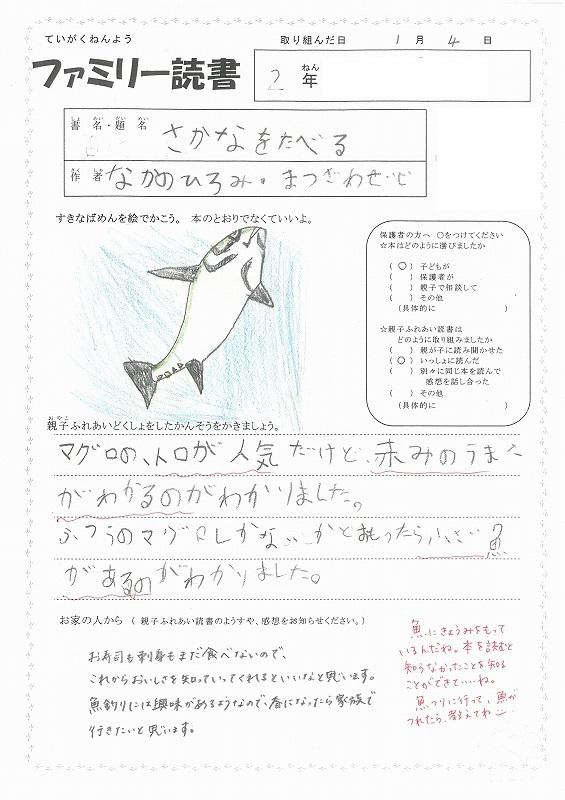 ていがくねんよう
取り組んだ日 1月4日
ファミリー読書
2年
ねん
書名・題名
しょめい だいめい
さかなをたべる
作者
さくしゃ
なかのひろみ。まつざわせいじ
すきなばめんを絵でかこう。 本のとおりでなくていいよ。
保護者の方へ ○をつけてください
☆本はどのように選びましたか
(○) 子どもが
( ) 保護者が
( ) 親子で相談して
( ) その他
(具体的に )
☆親子ふれあい読書は
どのように取り組みましたか
( ) 親が子に読み聞かせた
(○) いっしょに読んだ
( ) 別々に同じ本を読んで
感想を話し合った
( ) その他
(具体的に )
おやこ
親子ふれあいどくしょをしたかんそうをかきましょう。
マグロの、トロが人気だけど、赤みのうまべ
がわかるのがわかりました。
ふつうのマグロしかない かとおもったら小さい魚
があるのがわかりました。
お家の人から ( 親子ふれあい読書のようすや、感想をお知らせください。)
お寿司も刺身もまだ食べないので、
これからおいしさを知っていってくれるといいなと思います。
魚釣りには興味があるようなので、春になったら家族で
行きたいと思います。
魚にきょうみをもって
いるんだね。本を読むと
知らなかったことを知る
ことができていいね。
魚つりに行って、魚が
つれたら、教えてね